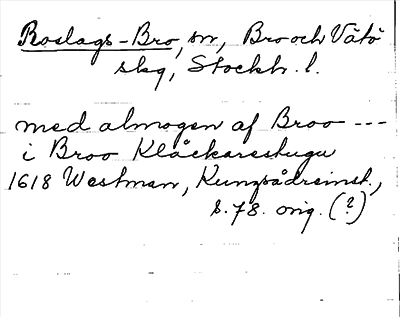 Roslags-Bro, sn, Bro och Vätö
skg, Stockh. l.
med almogen af Broo ---
i Broo Klåckarestugu
1618 Westman, Kungsådreinst.,
s. 78. orig. (?)